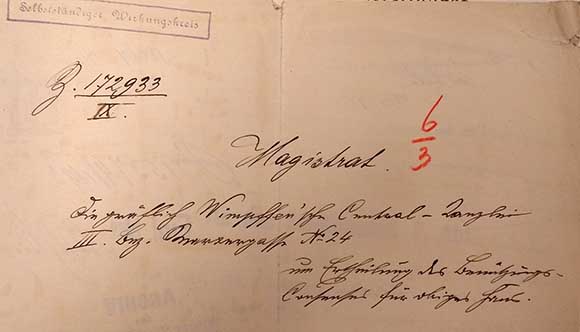 Selbstständiger Wirkungskreis
Z. 172933
IX.
6
3
Magistrat.
Die gräflich Wimpffen'sche Central-Kanzlei
III. Bez. No 24
um Ertheilung des Benützungs-
Consenses für obiges Haus.